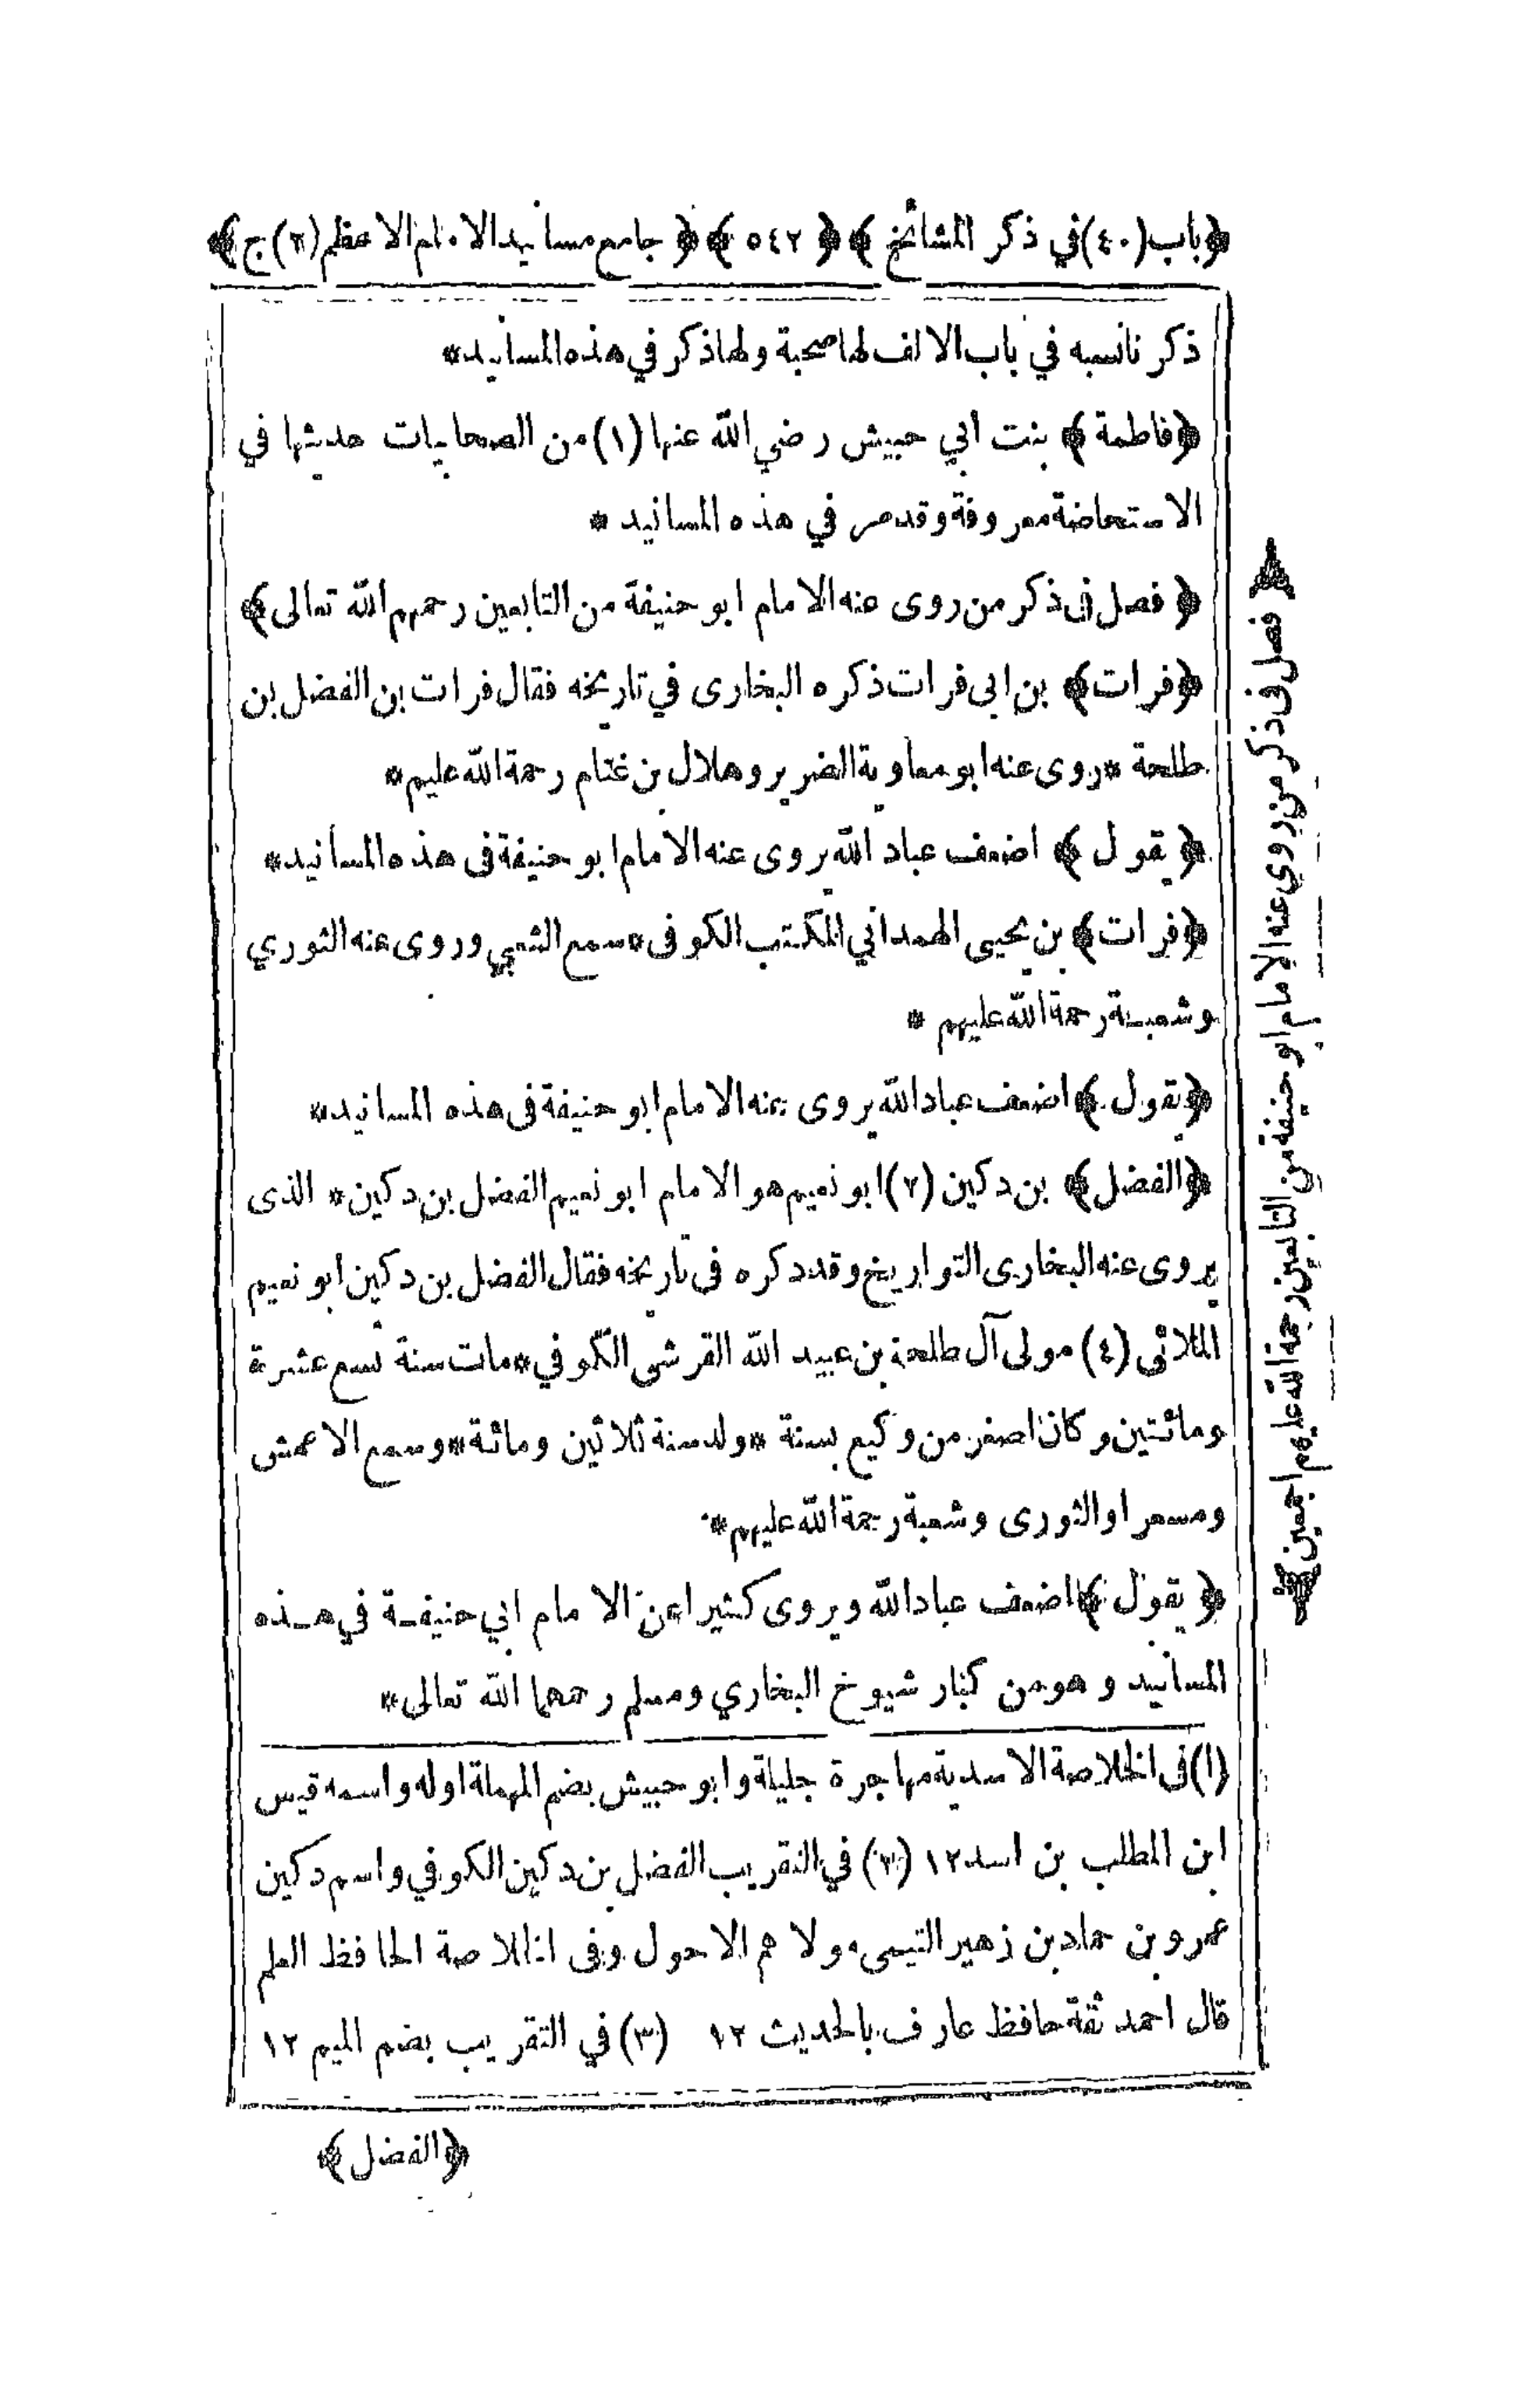 ﴿باب(٤٠)في ذكر المشائخ﴾ ﴿٥٤٢﴾ ﴿جامع مسانيد الامام الاعظم(٢)ج﴾
ذكرنا نسبه في باب الالف لها صحبة ولها ذكر في هذه المسانيد*
﴿فاطمة﴾ بنت ابي حبيش رضي الله عنها (١) من الصحابيات حديثها في
الاستحاضة معروفة وقد مر في هذه المسانيد *
﴿فصل فى ذكر من روى عنه الامام ابو حنيفة من التابعين رحمهم الله تعالى﴾
﴿فرات﴾ بن ابى فرات ذكره البخارى في تاريخه فقال فرات بن الفضل بن
طلحة *روى عنه ابو معاوية الضرير وهلال بن غنام رحمة الله عليهم*
﴿يقول﴾ اضعف عباد الله يروى عنه الامام ابو حنيفة فى هذه المسانيد*
﴿فرات﴾ بن يحيى الهمداني المكتب الكوفى *سمع الشعبي وروى عنه الثوري
وشعبة رحمة الله عليهم *
﴿يقول﴾ اضعف عباد الله يروى عنه الامام ابو حنيفة فى هذه المسانيد*
﴿الفضل﴾ بن دكين (٢) ابو نعيم هو الامام ابو نعيم الفضل بن دكين* الذى
يروى عنه البخارى التواريخ وقد دكره فى تاريخه فقال الفضل بن دكين ابو نعيم
الملائى (٤) مولى آل طلحة بن عبيد الله القرشى الكوفي *مات سنة تسع عشرة
ومائتين وكان اصغر من وكيع بسنة *ولد سنة ثلاثين ومائة *وسمع الاعمش
ومسعرا والثورى وشعبة رحمة الله عليهم*
﴿يقول﴾ اضعف عباد الله ويروى كثيرا عن الامام ابي حنيفة في هذه
المسانيد وهو من كبار شيوخ البخاري ومسلم رحمهما الله تعالى*
(١) فى الخلاصة الاسدية مهاجرة جليلة وابو حبيش بضم المهملة اوله واسمه قيس
ابن المطلب بن اسد ١٢ (٣) في التقريب الفضل بن دكين الكوفي واسم دكين
عمرو بن حماد بن زهير التيمى مولاهم الاحول وفى الخلاصة الحافظ العلم
قال احمد ثقة حافظ عارف بالحديث ١٢ (٣) في التقريب بضم الميم ١٢
﴿الفضل﴾
﴿فصل فى ذكر من روي عنه الامام ابو حنيفة من التابعين رحمة الله عليهم اجمعين﴾